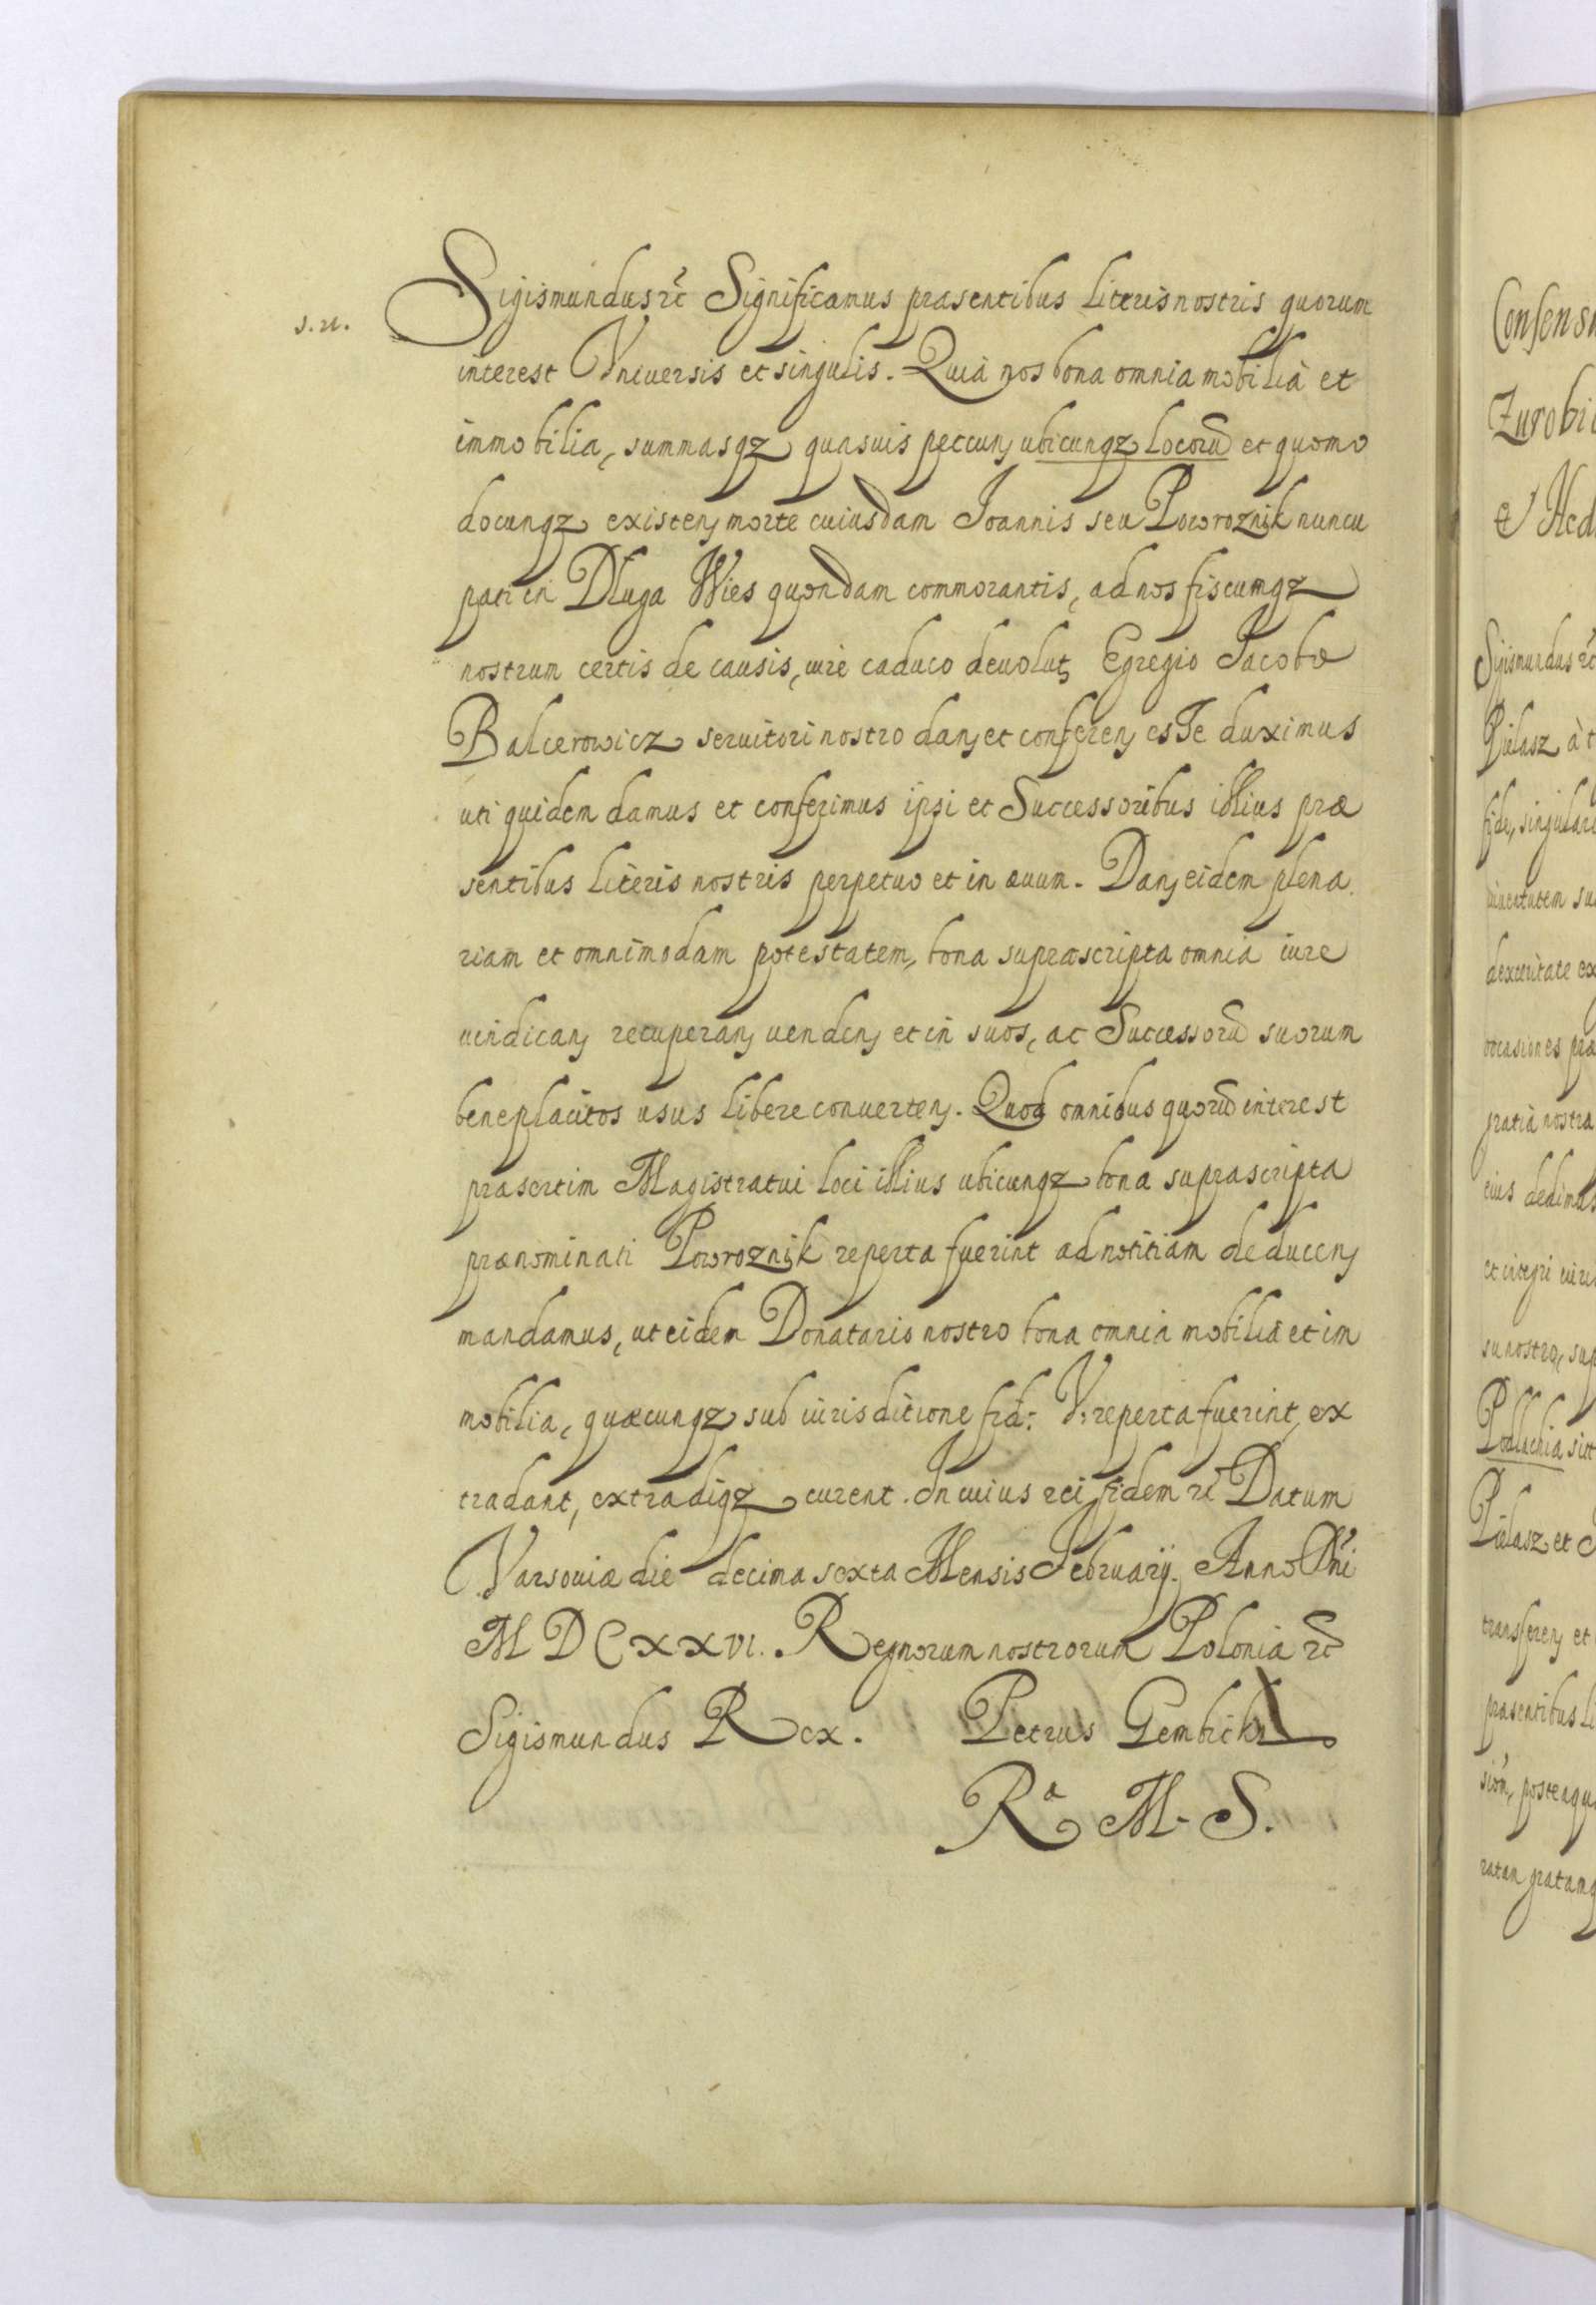 s. n.
Sigismundus rc̃ Significamus præsentibus literis nostris quorum
interest Vniuersis et singulis. Quià nos bona omnia mobilià et
immobilia, summasqz quasuis peccunɉ ubicunqz locorũ et quomo
docunqz existenɉ morte cuiusdam Joannis seu Powroznik nuncu
pati in Dluga Wies quondam commorantis, ad nos fiscumqz
nostrum certis de causis, iure caduco deuolutɉ Egregio Jacobo
Balcerowicz seruitori nostro danɉ et conferenɉ esse duximus
uti quidem damus et conferimus ipsi et Successoribus illius præ
sentibus literis nostris perpetuo et in æuum. Danɉ eidem plena
riam et omnimodam potestatem, bona supræscripta omnia iure
uindicanɉ recuperanɉ uendenɉ et in suos, ac Successorũ suorum
beneplacitos usus libere conuertenɉ. Quod omnibus quorũ interest
præsertim Magistratui loci illius ubicunqz bona suprascripta
prænominati Powroznik reperta fuerint ad notitiam deducenɉ
mandamus, ut eidem Donatario nostro bona omnia mobilia et im
mobilia, quæcunqz sub iurisditione fid: V: reperta fuerint, ex
tradant, extradiqz curent. In cuius rei fidem rc̃ Datum
Varsouiæ die decima sexta Mensis February. Anno Dñi
MDCXXVI. Regnorum nostrorum Poloniæ rc̃
Sigismundus Rex. Petrus Gembicki
Rᵃ M. S.
Consensu
Zurobi
Sigismundus rc̃
Pielasz à t
fide, singulari
dexteritate ex
occasiones præ
gratià nostra
eius dedimus
et integri iuris
su nostro, sup
Podlachia sit
Pielasz et J
transferenɉ et
præsentibus li
sioñ, posteaqu
ratam gratamq